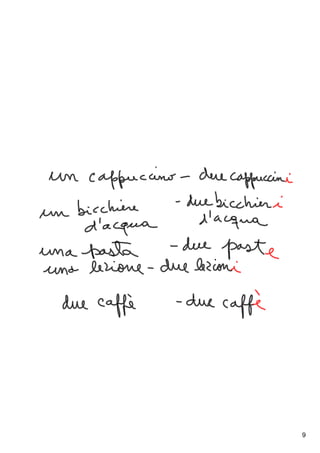 un cappuccino - due cappuccini
un bicchiere - due bicchieri
d'acqua d'acqua
una pasta - due paste
una lezione - due lezioni
due caffè - due caffè
9